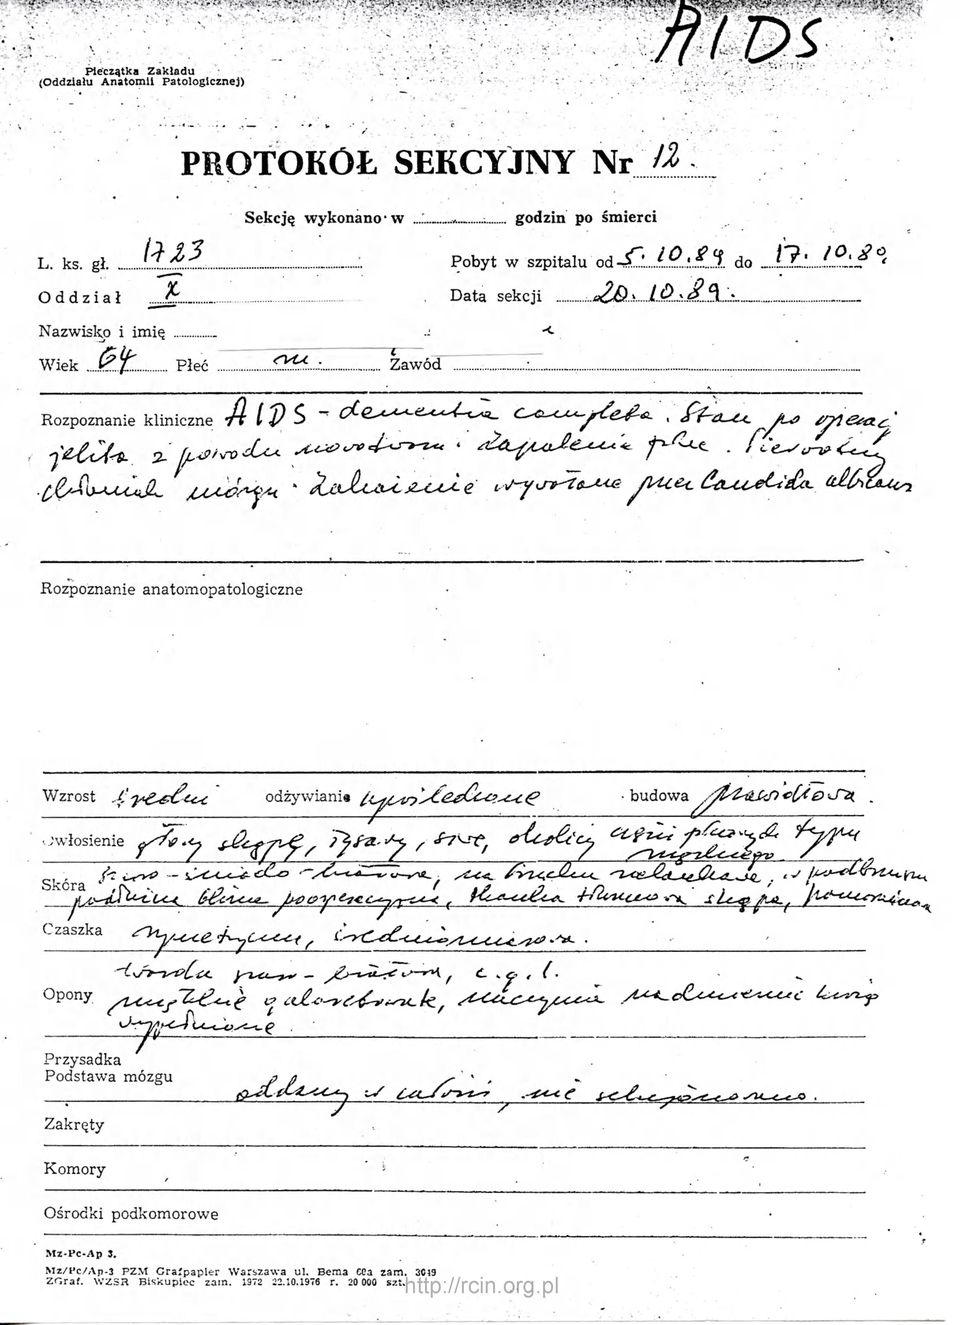 AIDS
Pieczątka Zakładu
(Oddziału Anatomii Patologicznej)
PROTOKÓŁ SEKCYJNY Nr 12.
Sekcję wykonano w godzin po śmierci
L. ks. gł. 1723 Pobyt w szpitalu od 5. 10.89 do 17. 10.89
Oddział X Data sekcji 20. 10.89.
Nazwisko i imię
Wiek 64 Płeć m. Zawód
Rozpoznanie kliniczne AIDS - dementia completa. Stan po operacj
jelita z powodu nowotworu. Zapalenie płuc. Pierwotny
chłoniak mózgu. Zakażenie wywołane przez Candida albicans
Rozpoznanie anatomopatologiczne
Wzrost średni odżywianie upośledzone budowa prawidłowa.
Owłosienie głowy skąpe, łysawy, siwe, okolicy części płciowych typu
męskiego.
Skóra szaro - śniado - biaława, na brzuchu, w podbrzuszu
blizna pooperacyjna, tkanka tłuszczowa skąpa,
Czaszka symetryczna, średniowymiarowa.
twarda szaro - biaława, c.g.l.
Opony miękkie, naczynia nadmiernie krwią
wypełnione.
Przysadka
Podstawa mózgu
oddany w całości, nie sekcjonowano.
Zakręty
Komory
Ośrodki podkomorowe
Mz-Pc-Ap 3.
Mz/Pc/Ap-3 PZM Grafpapier Warszawa ul. Bema 60a zam. 3049
ZGraf. WZSR Biskupiec zam. 1972 22.10.1976 r. 20 000 szt.
http://rcin.org.pl